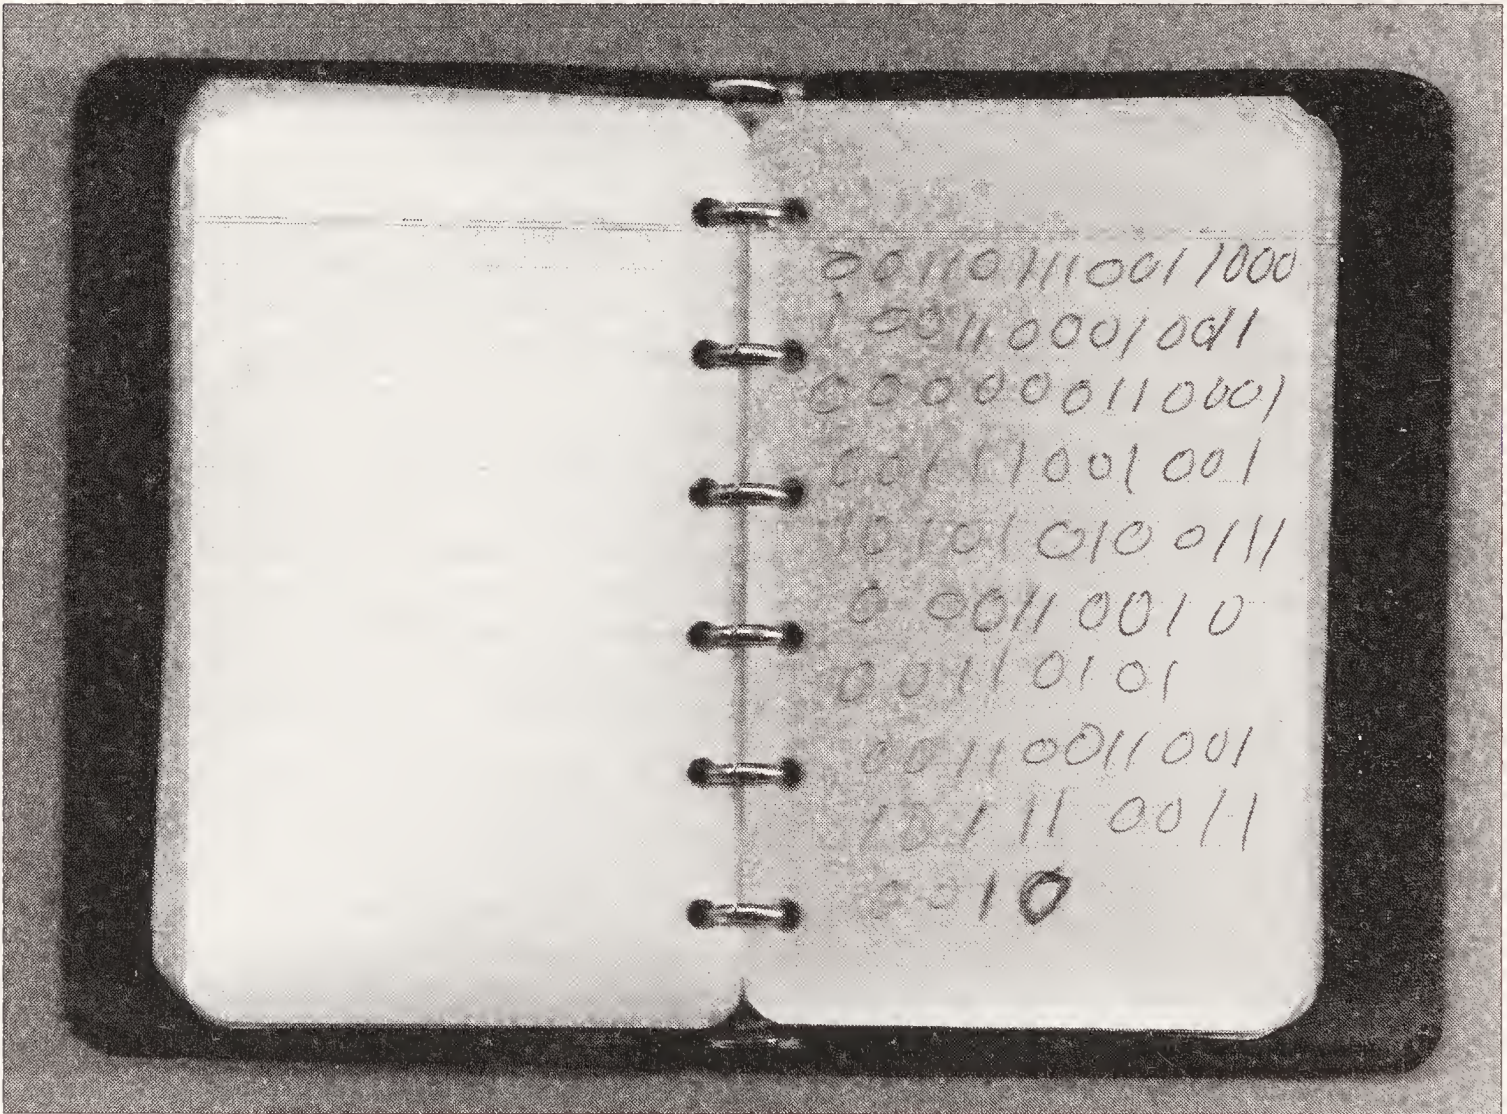 001101110011000
1001100010011
000000110001
00111001001
10101010 0111
0 00110010
00110101
00110011001
10111 0011
0010